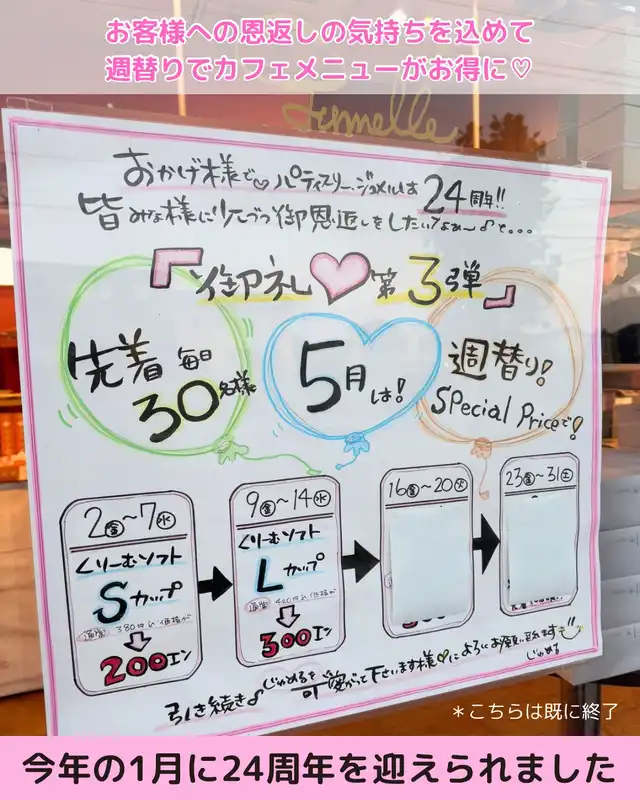 お客様への恩返しの気持ちを込めて
週替りでカフェメニューがお得に♡
Jumelle
おかげ様で♡パティスリー・ジュメルは24周年!!
皆みな様に少しづつ御恩返しをしたいなぁ〜♪と...
『御礼♡第3弾』
先着毎日30名様
5月は!
週替り!
Special Priceで!
2金〜7水
くりーむソフト
Sカップ
通常380円の価格が
200エン
9金〜14水
くりーむソフト
Lカップ
通常420円の価格が
300エン
16金〜20火
23金〜31土
引き続き♪じゅめるを可愛がって下さいます様♡によろしくお願い致します
じゅめる
＊こちらは既に終了
今年の1月に24周年を迎えられました